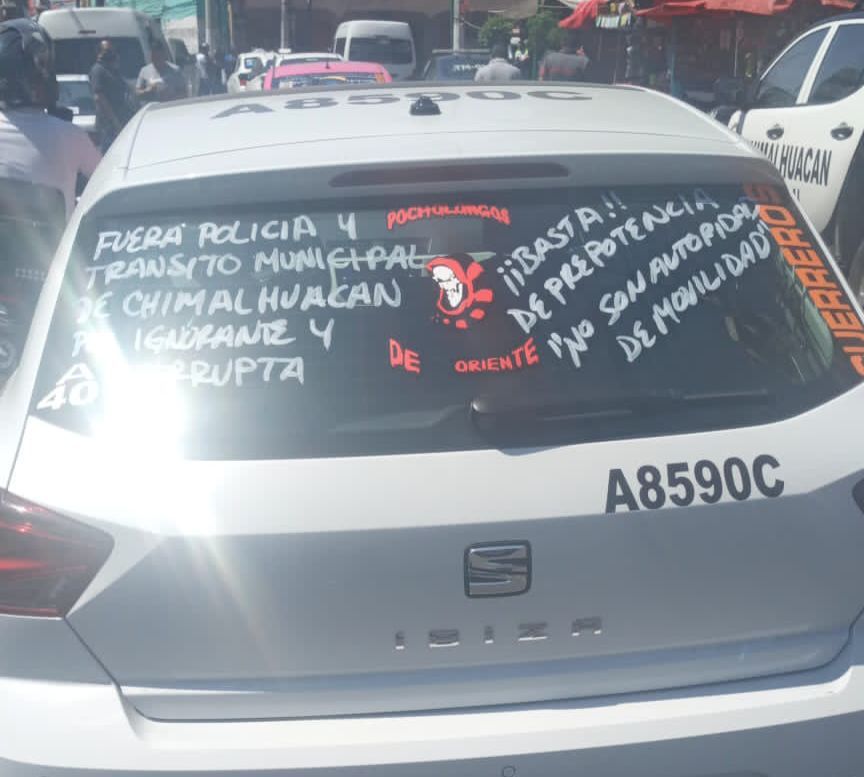 A8590C
CHIMALHUACAN
FUERA POLICIA Y
TRANSITO MUNICIPAL
DE CHIMALHUACAN
IGNORANTE Y
POCHOLONGOS
DE ORIENTE
¡¡BASTA!!
DE PREPOTENCIA
"NO SON AUTORIDAD
DE MOVILIDAD"
GUERREROS
40
A8590C
IBIZA